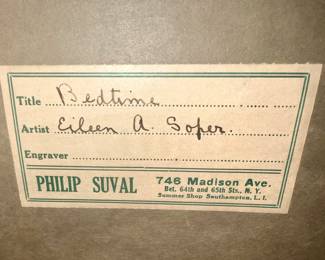 Title Bedtime
Artist Eileen A. Soper.
Engraver
PHILIP SUVAL 746 Madison Ave.
Bet. 64th and 65th Sts., N. Y.
Summer Shop Southampton, L. I.